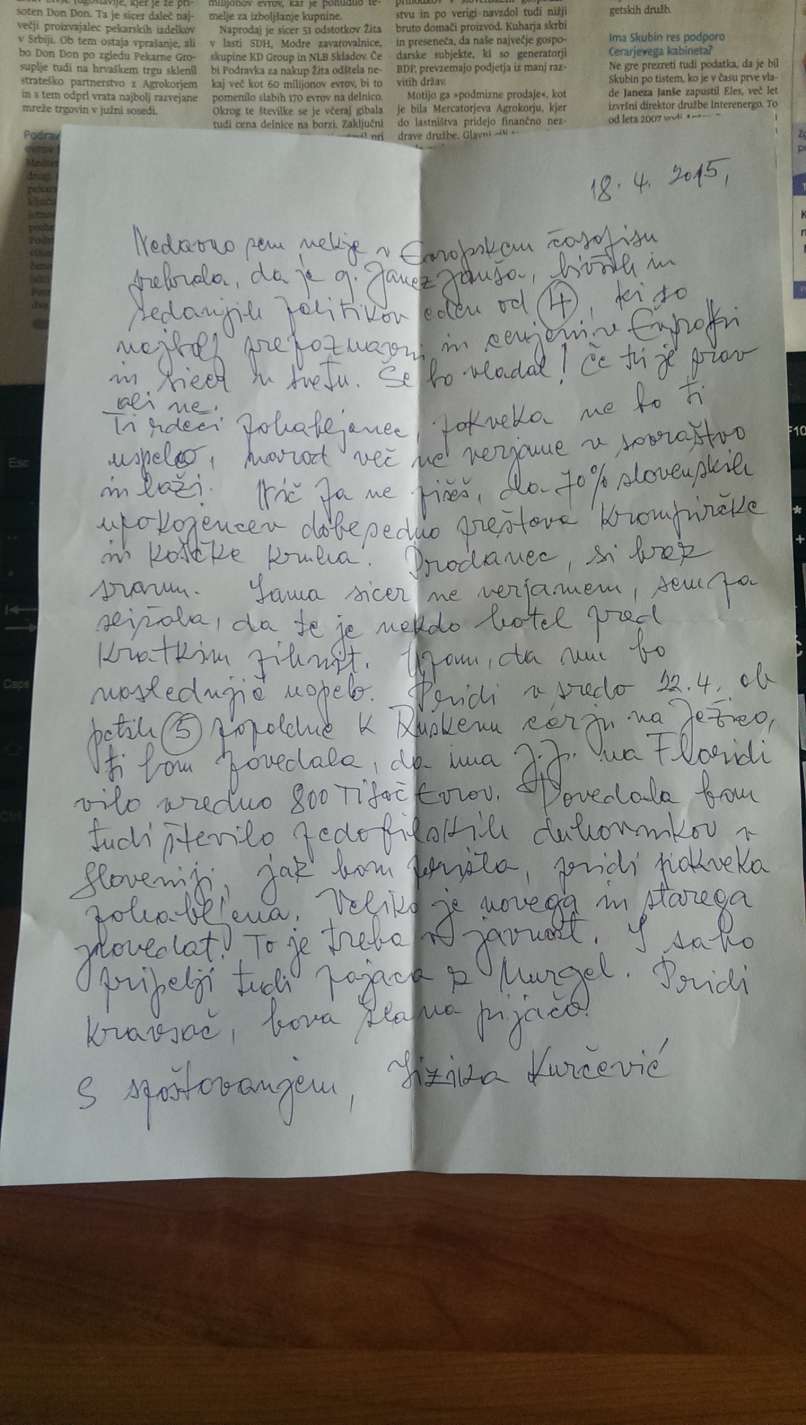 soten Don Don. Ta je sicer daleč naj-
večji proizvajalec pekarskih izdelkov
v Srbiji. Ob tem ostaja vprašanje, ali
bo Don Don po zgledu Pekarne Gro-
suplje tudi na hrvaškem trgu sklenil
strateško partnerstvo z Agrokorjem
in s tem odprl vrata najbolj razvejane
mreže trgovin v južni sosedi.
melje za izboljšanje kupnine.
Naprodaj je sicer 53 odstotkov Žita
v lasti SDH, Modre zavarovalnice,
skupine KD Group in NLB Skladov. Če
bi Podravka za nakup Žita odštela ne-
kaj več kot 60 milijonov evrov, bi to
pomenilo slabih 170 evrov na delnico.
Okrog te številke se je včeraj gibala
tudi cena delnice na borzi. Zaključni
stvu in po verigi navzdol tudi nižji
bruto domači proizvod. Kuharja skrbi
in preseneča, da naše največje gospo-
darske subjekte, ki so generatorji
BDP, prevzemajo podjetja iz manj raz-
vitih držav.
Motijo ga »podmizne prodaje«, kot
je bila Mercatorjeva Agrokorju, kjer
do lastništva pridejo finančno nez-
drave družbe. Glavni
getskih družb.
Ima Skubin res podporo
Cerarjevega kabineta?
Ne gre prezreti tudi podatka, da je bil
Skubin po tistem, ko je v času prve vla-
de Janeza Janše zapustil Eles, več let
izvršni direktor družbe Interenergo. To
od leta 2007
Esc
F10
Caps
18. 4. 2015,
Nedavno sem nekje v Evropskem časopisu
prebrala, da je g. Janez Janša, bivših in
sedanjih politikov eden od 4, ki so
najbolj prepoznavni in cenjeni v Evropi
in sicer v svetu. Še bo vladal! Če ti je prav
ali ne.
Ti rdeči pohabljenec, pokveka ne bo ti
uspelo, narod več ne verjame v sovraštvo
in laži. Nič pa ne pišeš, da 70% slovenskih
upokojencev dobesedno prešteva krompirčke
in koščke kruha. Prodanec, si brez
sramu. Sama sicer ne verjamem, sem pa
slišala, da te je nekdo hotel pred
kratkim fihnit. Upam, da mu bo
naslednjič uspelo. Pridi v sredo 22.4. ob
petih 5 popoldne k Ruskemu carju na Ježico,
ti bom povedala, da ima J.J. na Floridi
vilo vredno 800 Tisoč Evrov. Povedala bom
tudi število pedofilskih duhovnikov v
Sloveniji, jaz bom prišla, pridi pokveka
pohabljena. Veliko je novega in starega
povedat. To je treba v javnost. S sabo
pripelji tudi pajaca z Murgel. Pridi
kravsač, bova pijačo!
S spoštovanjem, Kurčević